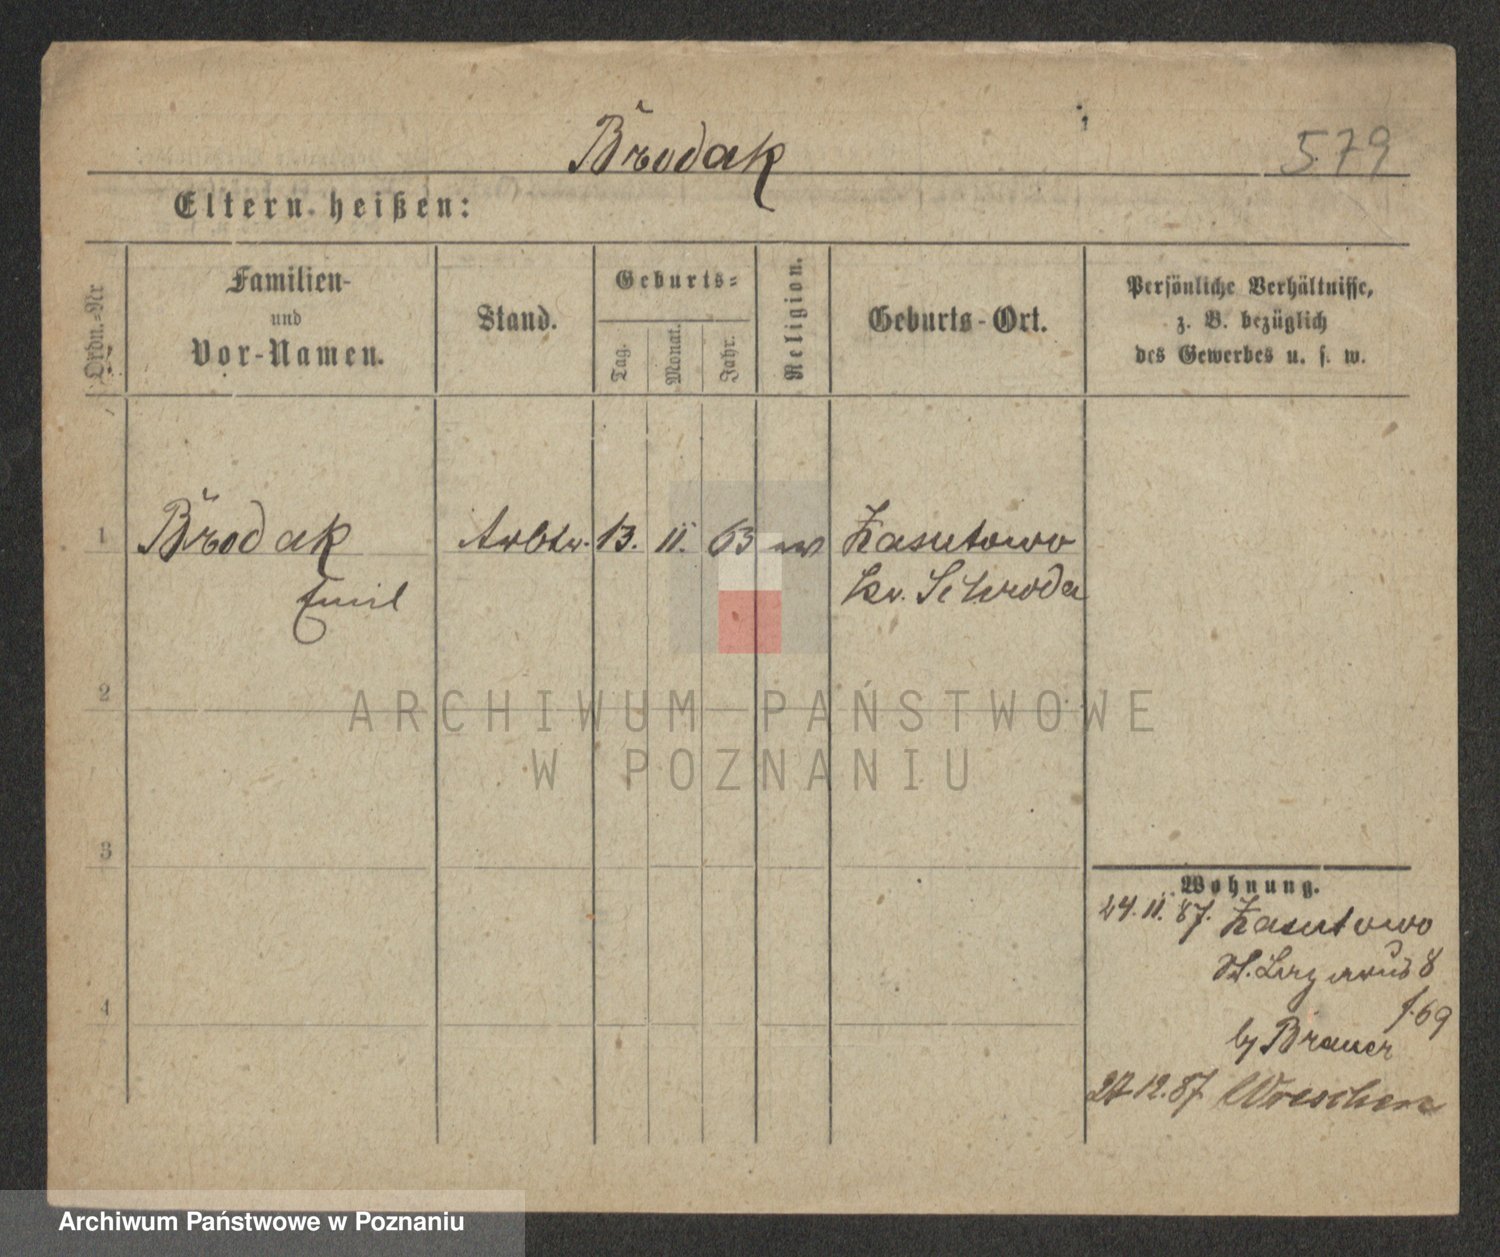 Brodak
579
Eltern heißen:
Ordn.-Nr
Familien-
und
Vor-Namen.
Stand.
Geburts-
Tag.
Monat.
Jahr.
Religion.
Geburts-Ort.
Persönliche Verhältnisse,
z. B. bezüglich
des Gewerbes u. s. w.
1 Brodak 13. 11. 63 Zasutowo
Emil Kr. Schroda
2
ARCHIWUM PAŃSTWOWE
W POZNANIU
3
Wohnung.
24. 11. 87. Zasutowo
St. Lazarus 8
4
f. 69
by Brauer
27 12. 87 Wreschen
Archiwum Państwowe w Poznaniu